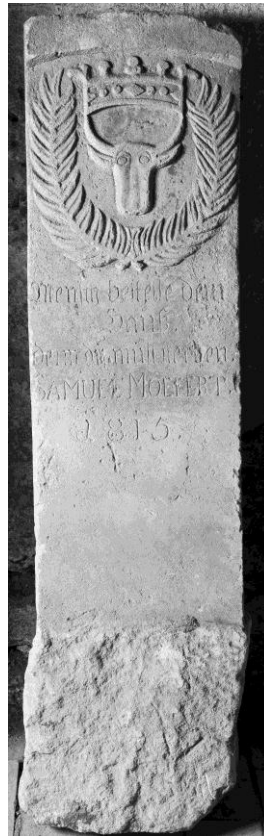 Mensch bestelle dein
Hauß.
denn du must sterben.
SAMUEL
1815.